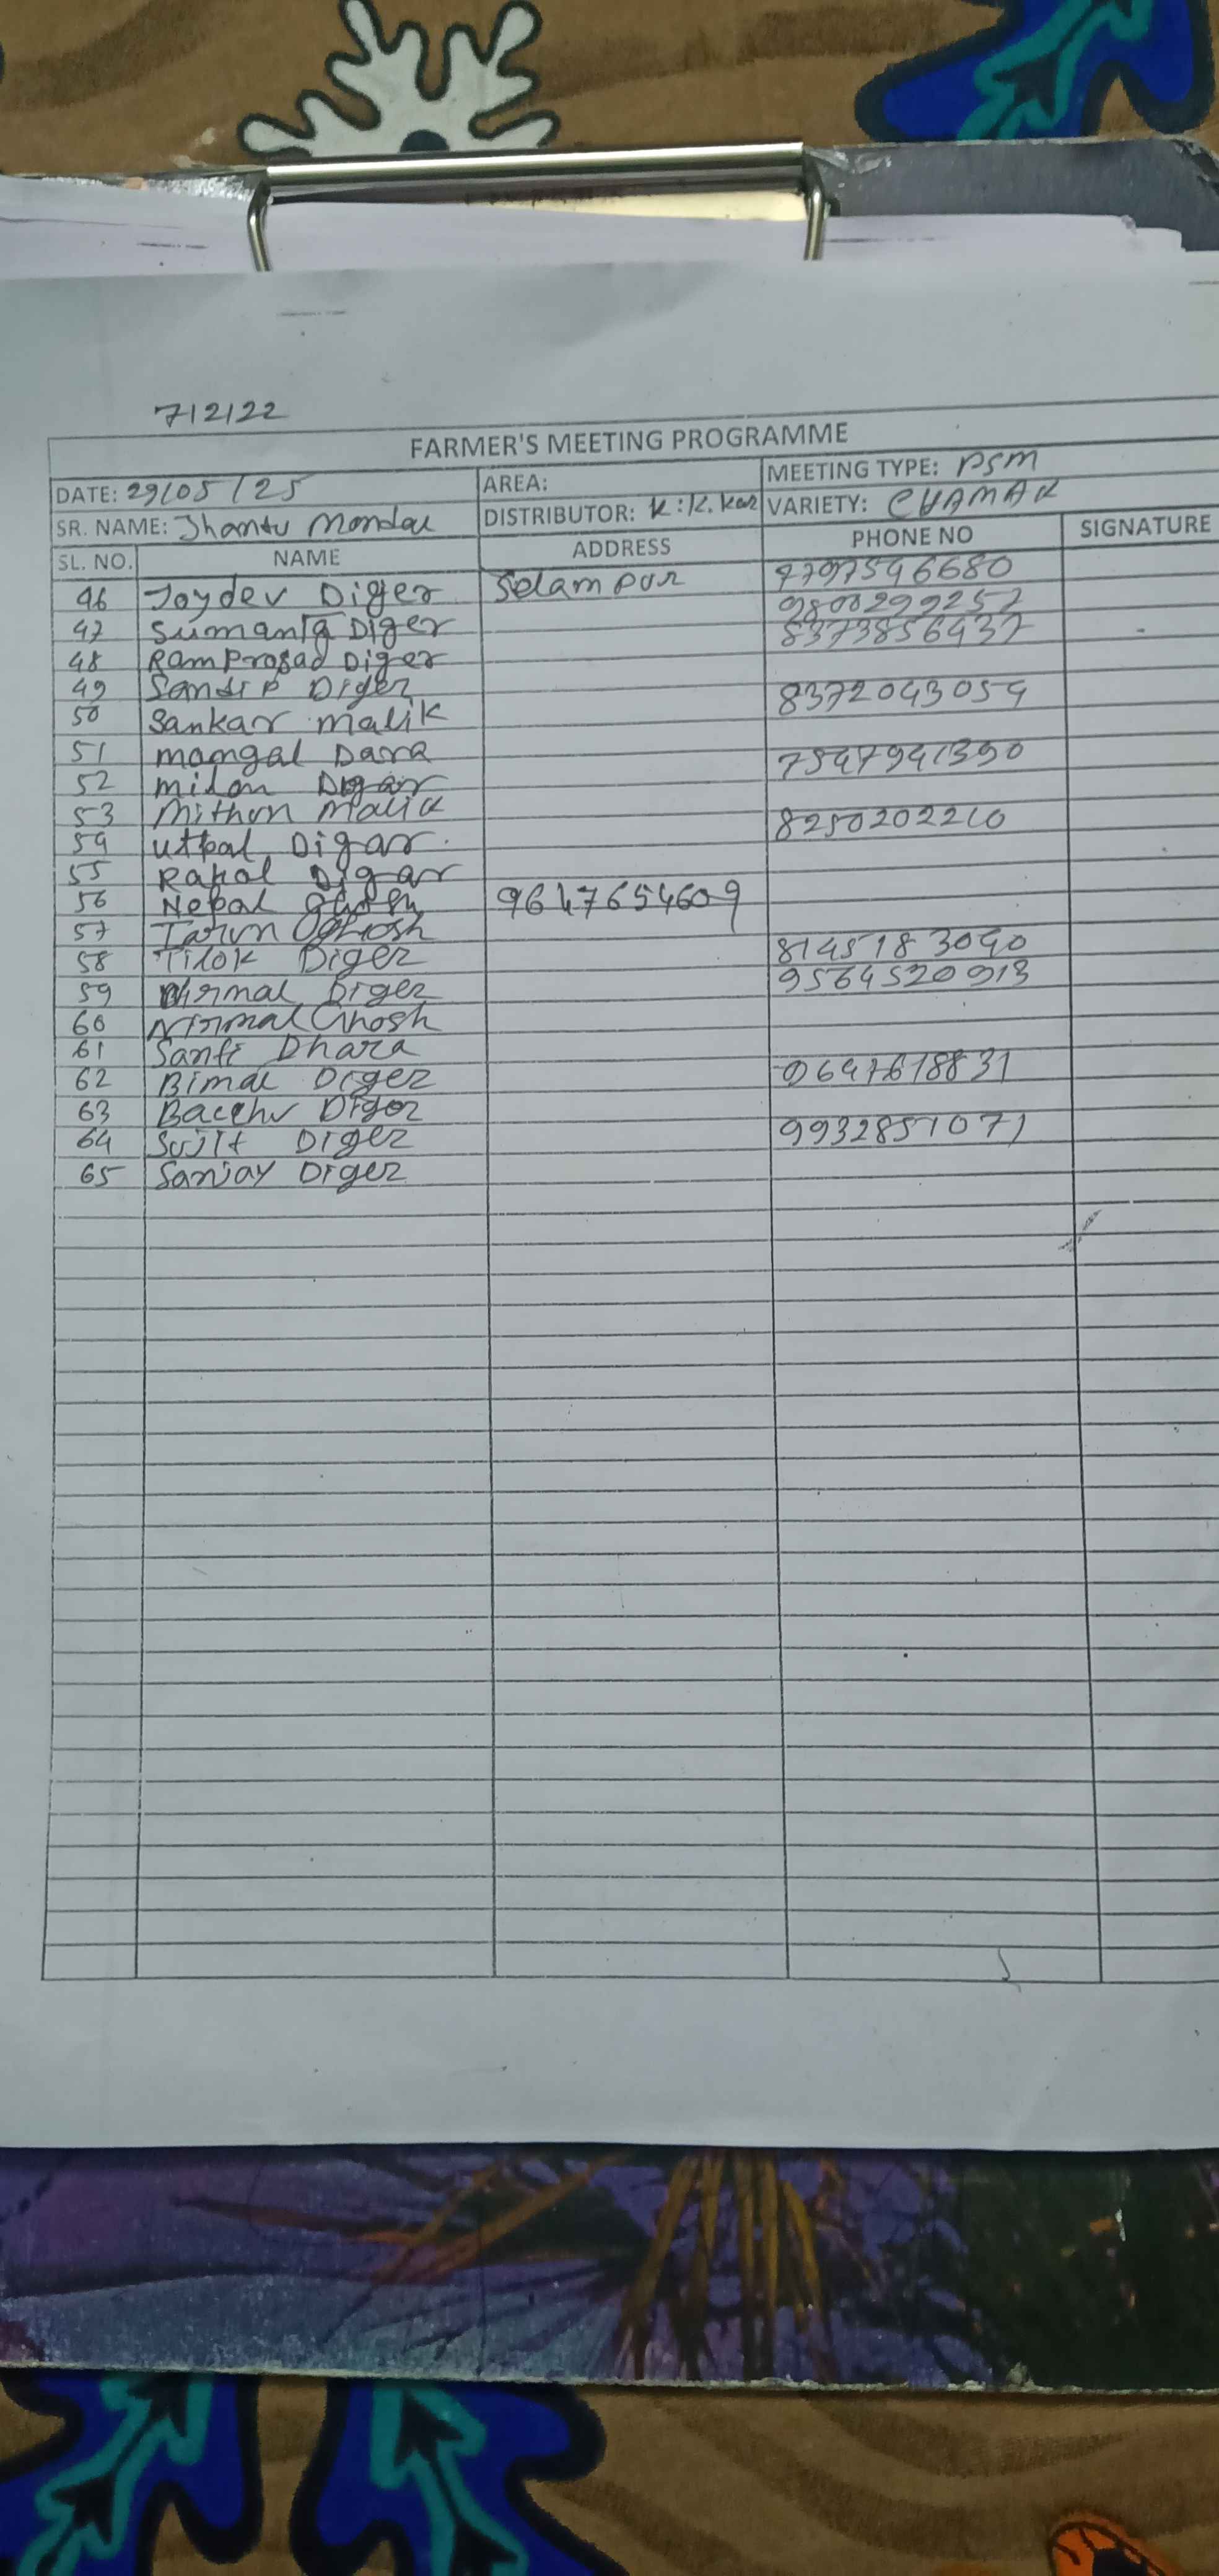 712122
FARMER'S MEETING PROGRAMME
DATE: 29/05/25 AREA: MEETING TYPE: PSM
SR. NAME: Jhantu Mondal DISTRIBUTOR: K.K. Kar VARIETY: CHAMAK
SL. NO. NAME ADDRESS PHONE NO SIGNATURE
46 Joydev Diger Selampur 9797546680
47 Sumanta Diger 9800299257
48 Ramprosad Diger 8373856437
49 Sandip Diger
50 Sankar malik 8372043054
51 mangal Dara
52 milan Digar 7547941390
53 Mithun Malik
54 utpal Digar 8250202210
55 Rakal Digar
56 Nepal Ghosh 9647654609
57 Tarun Ghosh
58 Tilok Diger 8145183040
59 Nirmal Diger 9564520913
60 Nirmal Ghosh
61 Santi Dhara
62 Bimal Diger 9647618831
63 Bacchu Diger
64 Sujit Diger 9932851071
65 Sanjay Diger